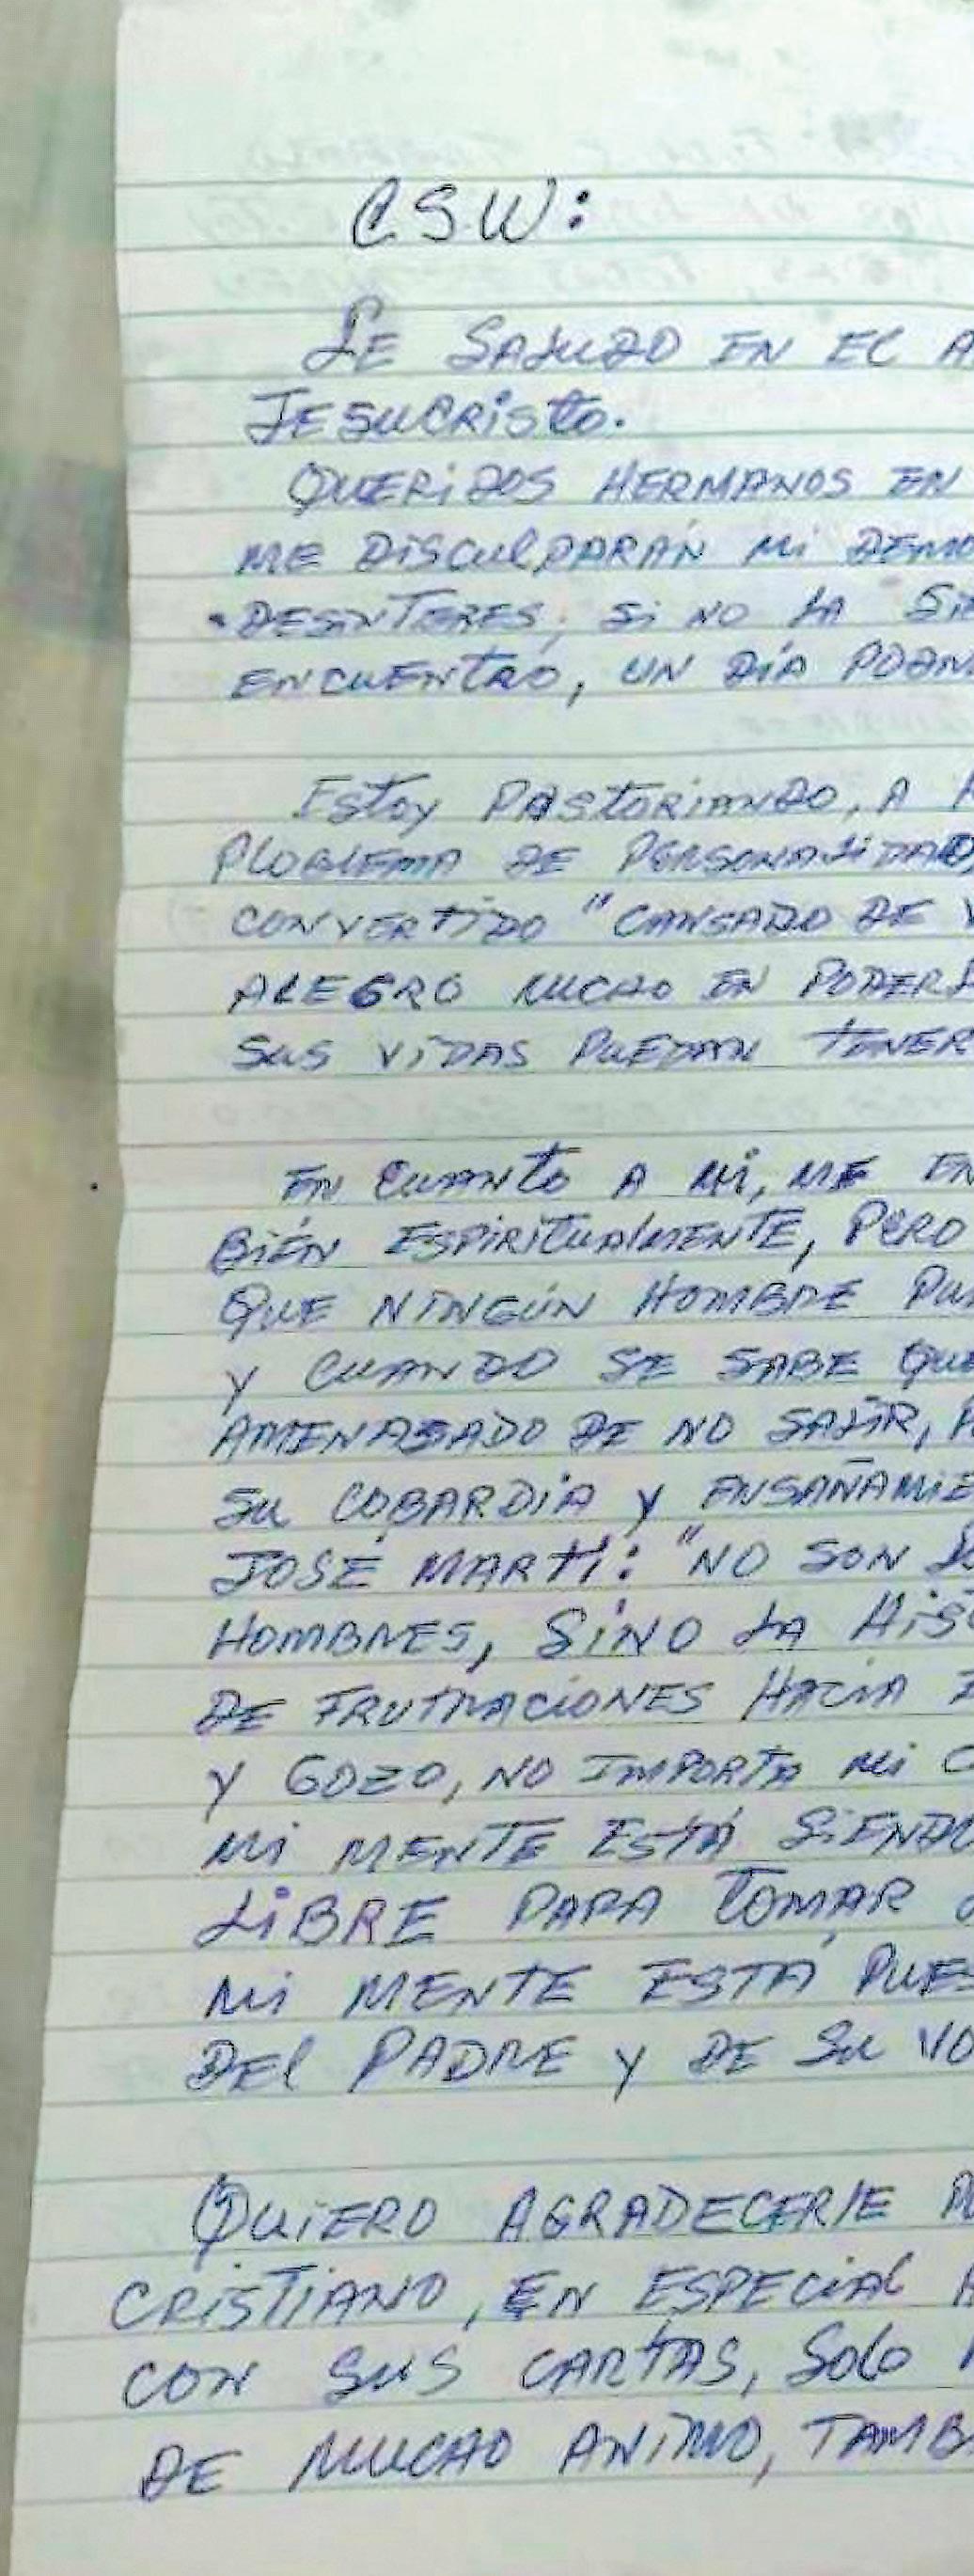 CSW:
LE SALUDO EN EL A
JESUCRISTO.
QUERIDOS HERMANOS EN
ME DISCULPARÁN MI DEMO
DESINTERES, SI NO LA SI
ENCUENTRO, UN DÍA PODR
ESTOY PASTORIANDO, A
PLOBLEMA DE PERSONALIDAD
CONVERTIDO "CANSADO DE V
ALEGRO MUCHO EN PODER
SUS VIDAS PUEDAN TENER
EN CUANTO A MI, ME EN
BIÉN ESPIRITUALMENTE, PERO
QUE NINGÚN HOMBRE PU
Y CUANDO SE SABE QUE
AMENASADO DE NO SALIR,
SU COBARDÍA Y ENSAÑAMIE
JOSÉ MARTÍ: "NO SON
HOMBRES, SINO LA HIS
DE FRUTRACIONES HACIA
Y GOZO, NO IMPORTA MI C
MI MENTE ESTÁ SIENDO
LIBRE PARA TOMAR
MI MENTE ESTÁ PUES
DEL PADRE Y DE SU VO
QUIERO AGRADECERLE
CRISTIANO, EN ESPECIAL
CON SUS CARTAS, SOLO
DE MUCHO ANIMO, TAMB